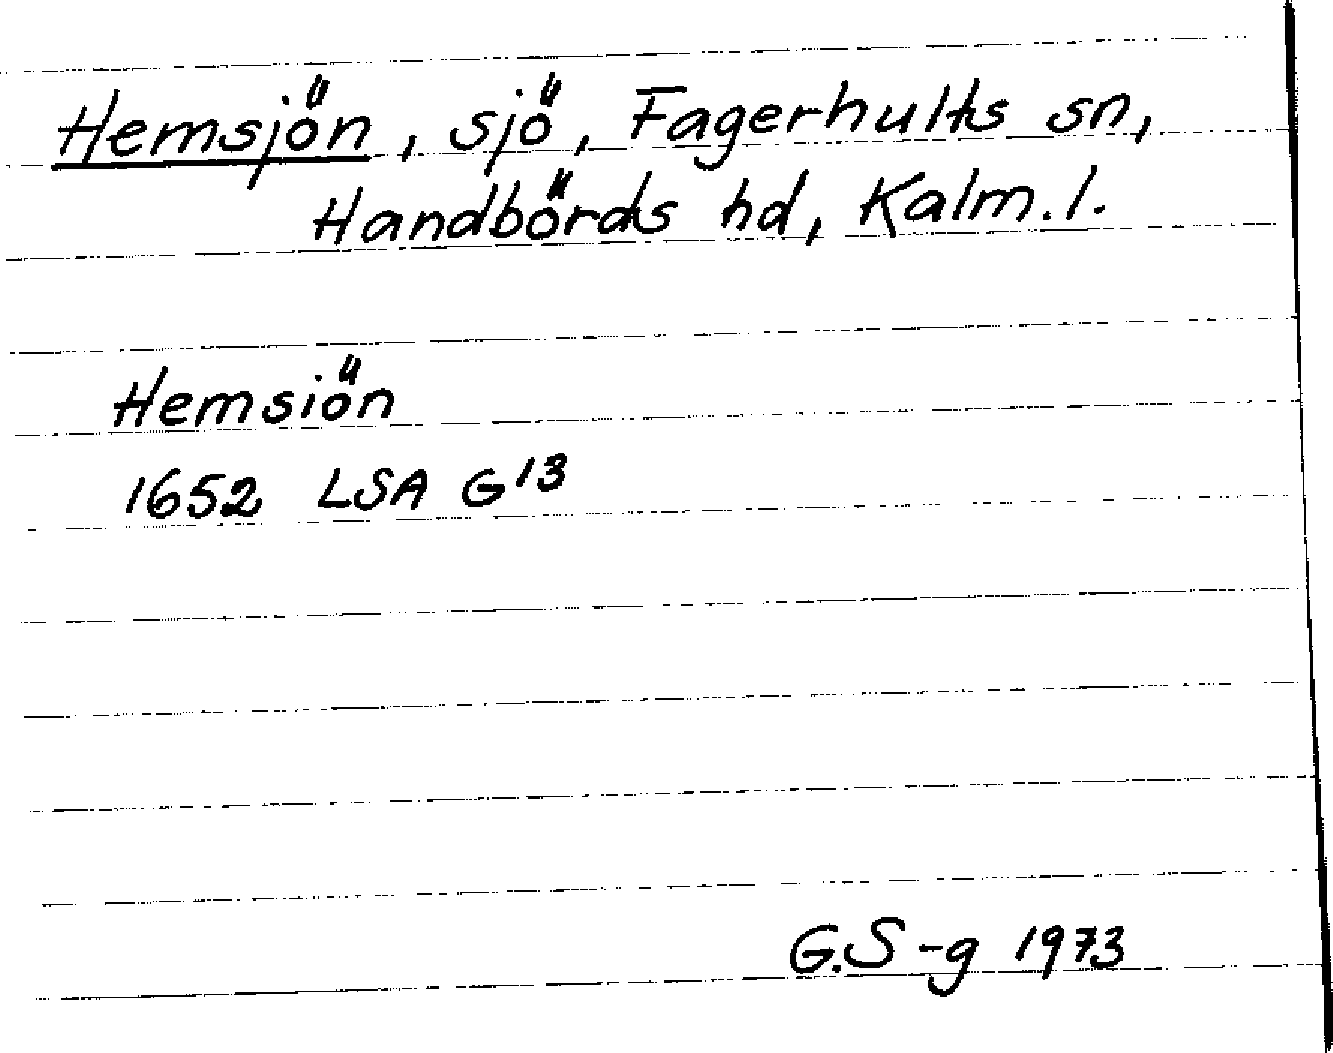 Hemsjön, sjö, Fagerhults sn,
Handbörds hd, Kalm. l.
Hemsiön
1652 LSA G13
G.S-g 1973